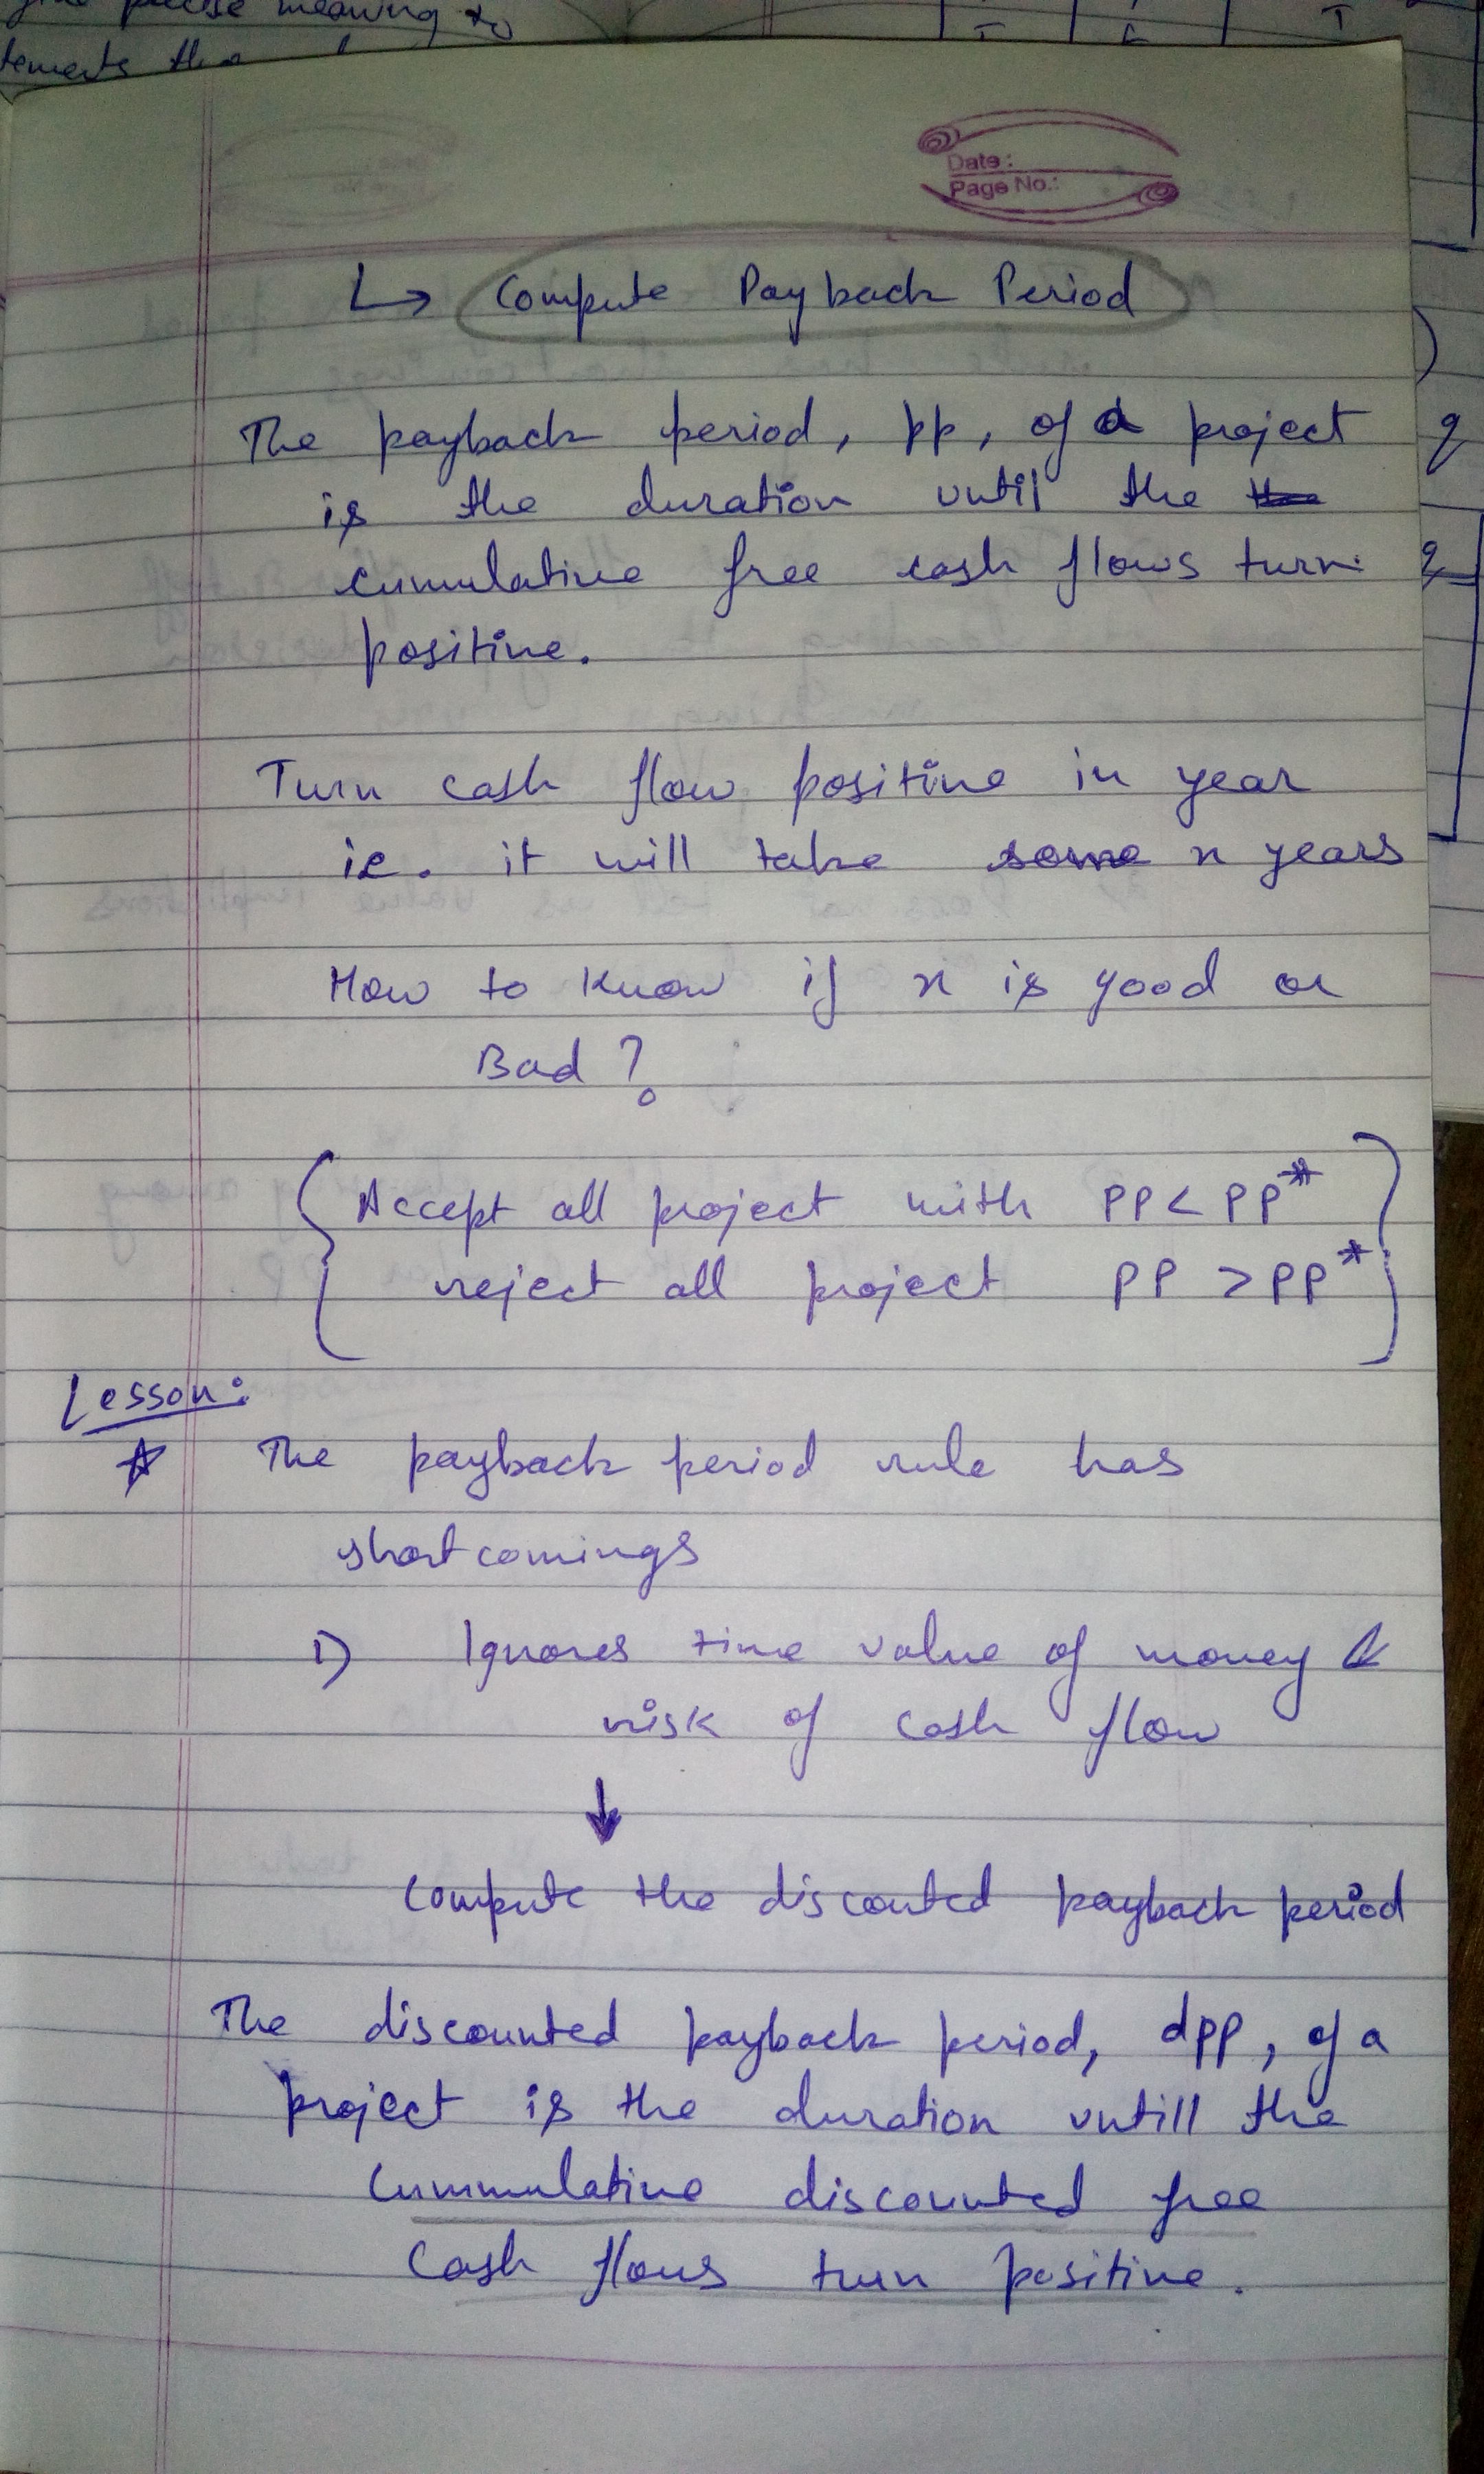 give precise meaning to
tements the
Date:
Page No.:
↳ Compute Payback Period
The payback period, pp, of a project
is the duration until the the
cumulative free cash flows turn
positive.
Turn cash flow positive in year
ie. it will take some n years
How to know if n is good or
Bad ?
{ Accept all project with PP < PP* }
reject all project PP > PP*
Lesson:
☆ The payback period rule has
shortcomings
1) Ignores time value of money &
risk of cash flow
↓
Compute the discounted payback period
The discounted payback period, dpp, of a
project is the duration untill the
Cummulative discounted free
Cash flows turn positive.